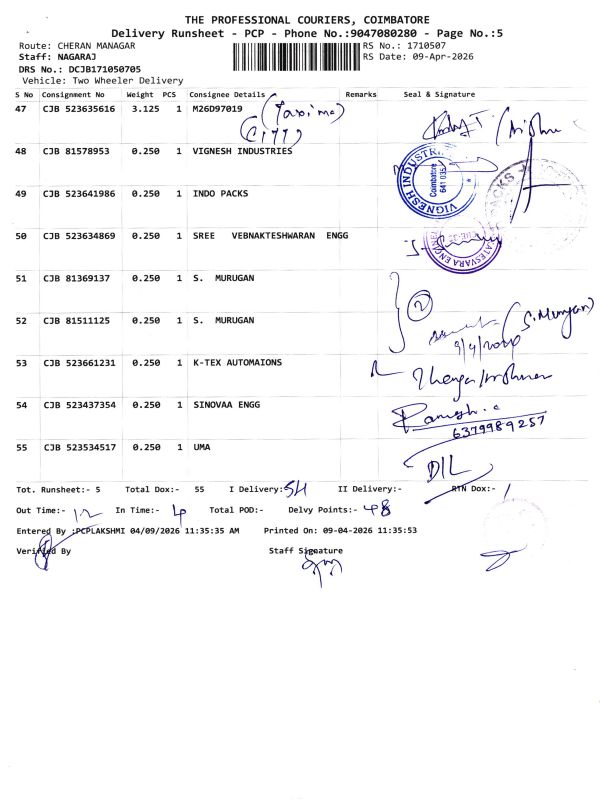 THE PROFESSIONAL COURIERS, COIMBATORE
Delivery Runsheet - PCP - Phone No.:9047080280 - Page No.:5
Route: CHERAN MANAGAR
RS No.: 1710507
Staff: NAGARAJ
RS Date: 09-Apr-2026
DRS No.: DCJB171050705
Vehicle: Two Wheeler Delivery
S No Consignment No Weight PCS Consignee Details Remarks Seal & Signature
47 CJB 523635616 3.125 1 M26D97019
48 CJB 81578953 0.250 1 VIGNESH INDUSTRIES
VIGNESH INDUSTR
Coimbatore
641 035
49 CJB 523641986 0.250 1 INDO PACKS
PACKS
50 CJB 523634869 0.250 1 SREE VEBNAKTESHWARAN ENGG
51 CJB 81369137 0.250 1 S. MURUGAN
2
52 CJB 81511125 0.250 1 S. MURUGAN
(S. Murugan)
53 CJB 523661231 0.250 1 K-TEX AUTOMAIONS
54 CJB 523437354 0.250 1 SINOVAA ENGG
Ramesh. c
6379989257
55 CJB 523534517 0.250 1 UMA
D/L
Tot. Runsheet:- 5 Total Dox:- 55 I Delivery:- 54 II Delivery:- RTN Dox:- 1
Out Time:- 12 In Time:- 4 Total POD:- Delvy Points:- 48
Entered By :PCPLAKSHMI 04/09/2026 11:35:35 AM Printed On: 09-04-2026 11:35:53
Verified By Staff Signature